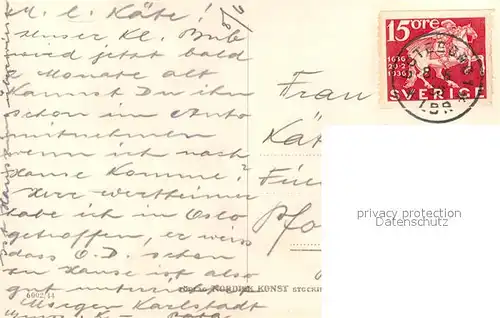 M. l. Käte!
Unser Kl. Bub
wird jetzt bald
2 Monate alt
Kannst Du ihn
schon im Auto
mitnehmen
wenn ich nach
Hause komme?
Herr Wertheimer
habe ich in Oslo
getroffen, er weis
dass O.D. schon
zu Hause ist also
gut
Morgen Karlstadt
6902/44
Frau
Kät
Pfo
NORDISK KONST STOCKH
15 ÖRE
1636
20-2
1936
SVERIGE
GÖTEBORG 1
LBR
privacy protection
Datenschutz